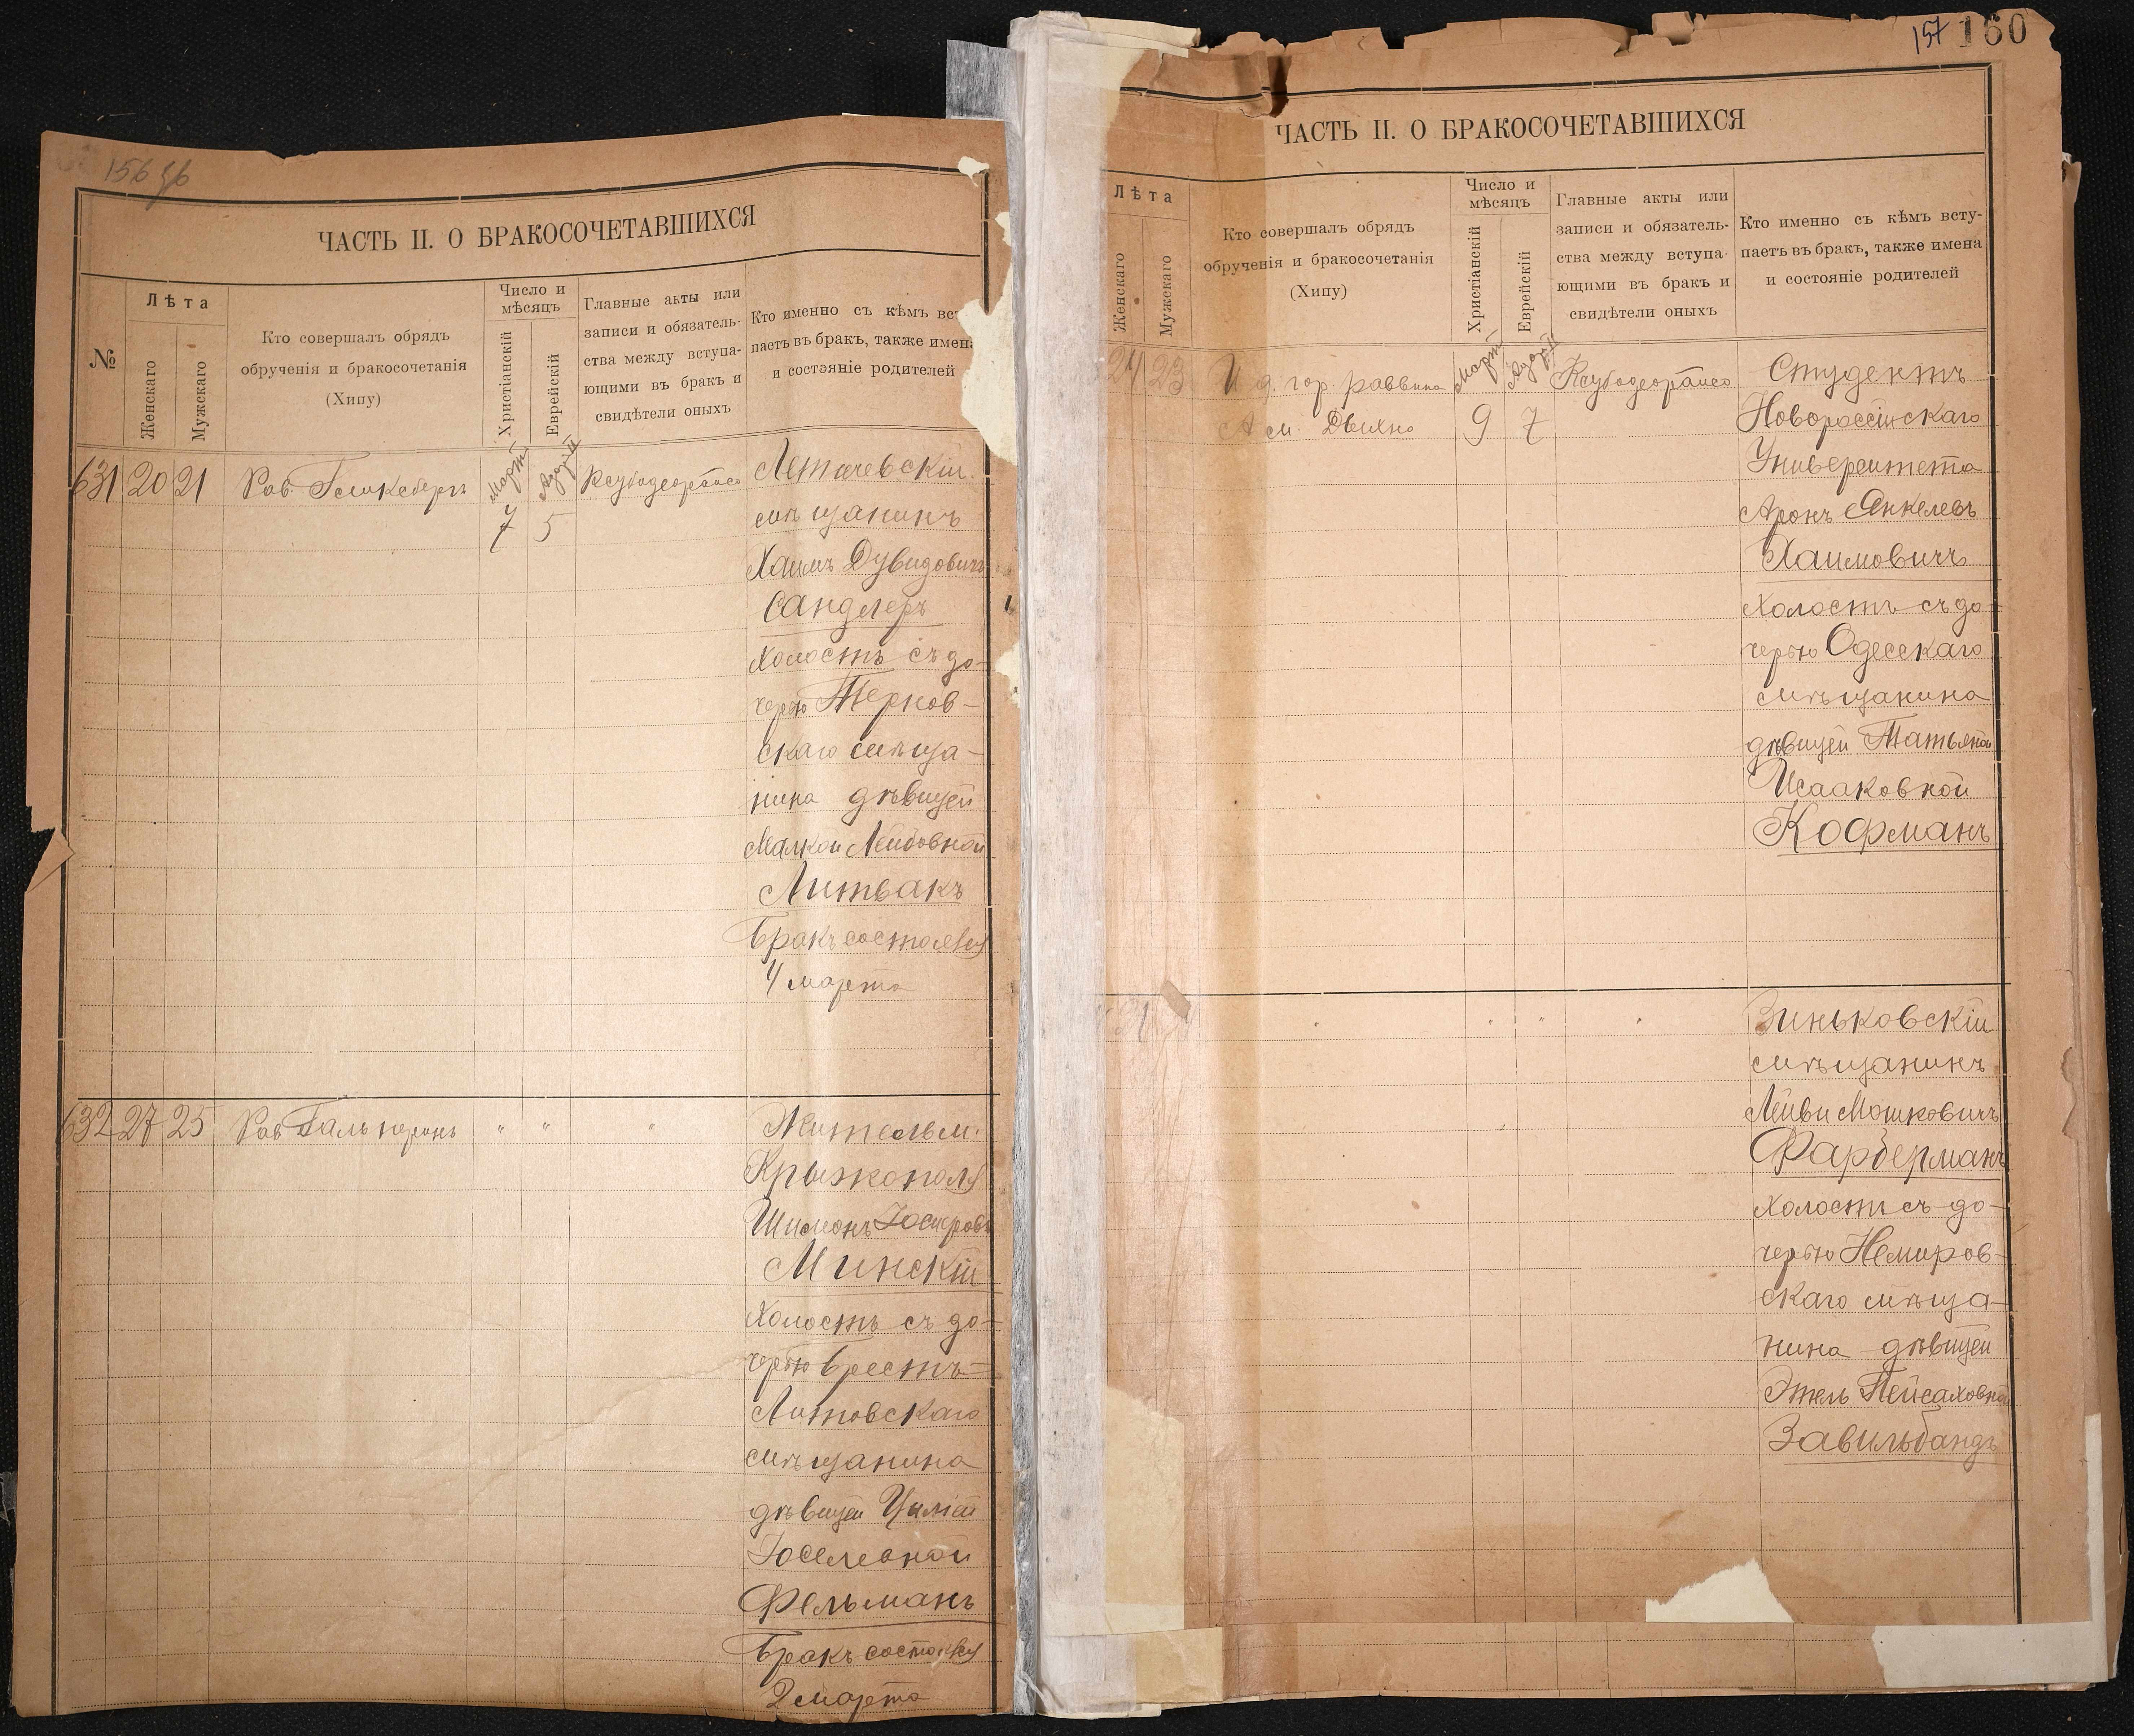 156 об
ЧАСТЬ II. О БРАКОСОЧЕТАВШИХСЯ
№
Лѣта
Женскаго
Мужскаго
Кто совершалъ обрядъ
обрученія и бракосочетанія
(Хипу)
Число и
мѣсяцъ
Христіанскій
Еврейскій
Главные акты или
записи и обязатель-
ства между вступа-
ющими въ бракъ и
свидѣтели оныхъ
Кто именно съ кѣмъ вс
паетъ въ бракъ, также имен
и состояніе родителей
631 20 21 Рав. Март 7 5
Летичевскій
мѣщанинъ
Хаимъ Дувидовичъ
Сандлеръ
холостъ съ до-
черью Тернов-
скаго мѣща-
нина дѣвицей
Малкой Лейбовной
Литвакъ
Бракъ состоялся
4 марта
632 27 25 Рав. Гальперинъ " " "
Житель м.
Крыжополя
Шимонъ
Минскій
холостъ съ до-
черью Брестъ-
Литовскаго
мѣщанина
дѣвицей
Іоселевной
Фельманъ
Бракъ состоялся
2 марта
157 160
ЧАСТЬ II. О БРАКОСОЧЕТАВШИХСЯ
Лѣта
Женскаго
Мужскаго
Кто совершалъ обрядъ
обрученія и бракосочетанія
(Хипу)
Число и
мѣсяцъ
Христіанскій
Еврейскій
Главные акты или
записи и обязатель-
ства между вступа-
ющими въ бракъ и
свидѣтели оныхъ
Кто именно съ кѣмъ всту-
паетъ въ бракъ, также имена
и состояніе родителей
24 23 И. д. гор. раввина Март
А. М. Дыхно 9 7
Студентъ
Новороссійскаго
Университета
Аронъ Янкелевъ
Хаимовичъ
холостъ съ до-
черью Одесскаго
мѣщанина
дѣвицей Татьяной
Исааковной
Кофманъ
" " " "
Зиньковскій
мѣщанинъ
Лейви Мошковичъ
Фарберманъ
холостъ съ до-
черью Немиров-
скаго мѣща-
нина дѣвицей
Этель Пейсаховной
Завильбандъ